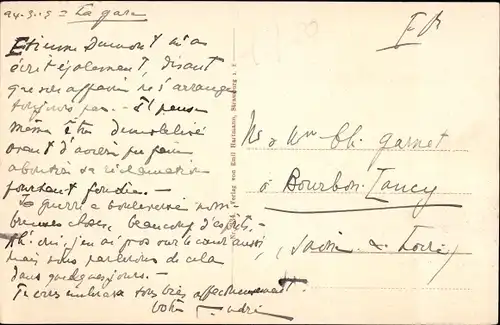 24.3.19 = La gare
Etienne Dumont m'a
écrit également, disant
que ses affaires ne s'arrangent
toujours pas. - Il pense
même être démobilisé
avant d'avoir pu faire
aboutir sa réclamation
pourtant fondée. -
La guerre a bouleversé nom-
breuses choses, beaucoup d'esprits. -
Ah! oui, j'en ai gros sur le cœur aussi,
mais nous parlerons de cela
dans quelques jours. -
Je vous embrasse tous bien affectueusement.
Votre André
Verlag von Emil Hartmann, Strassburg i. E.
F M
Mr & Mme Ch. Garnet
à Bourbon-Lancy
(Saône & Loire)